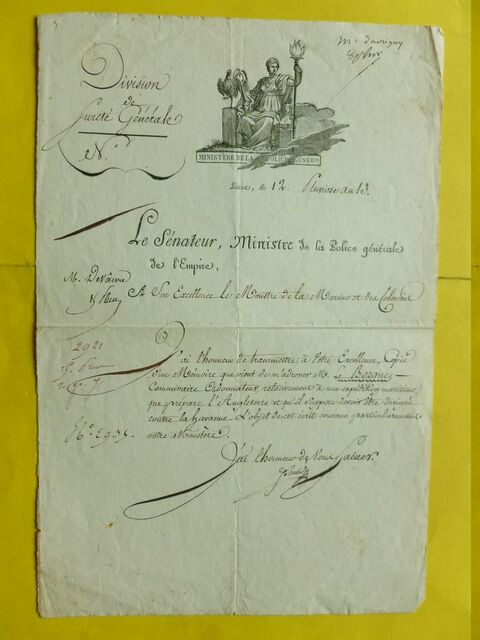 Division
de
Sureté Générale
N.°
MINISTÈRE DE LA POLICE GÉNÉR.le
Paris, le 12 Pluviose an 13.
Le Sénateur, Ministre de la Police générale
de l'Empire,
A Son Excellence le Ministre de la Marine et des Colonies
M. Devaivre
2921
J'ai l'honneur de transmettre à Votre Excellence Copie
d'un Mémoire que vient de m'adresser M.
Commissaire Ordonnateur, relativement à une expédition maritime
que prépare l'Angleterre et qu'il suppose devoir être dirigée
contre la havanne. L'objet de cet écrit concerne particulièrement
votre Ministère.
J'ai l'honneur de Vous Saluer.